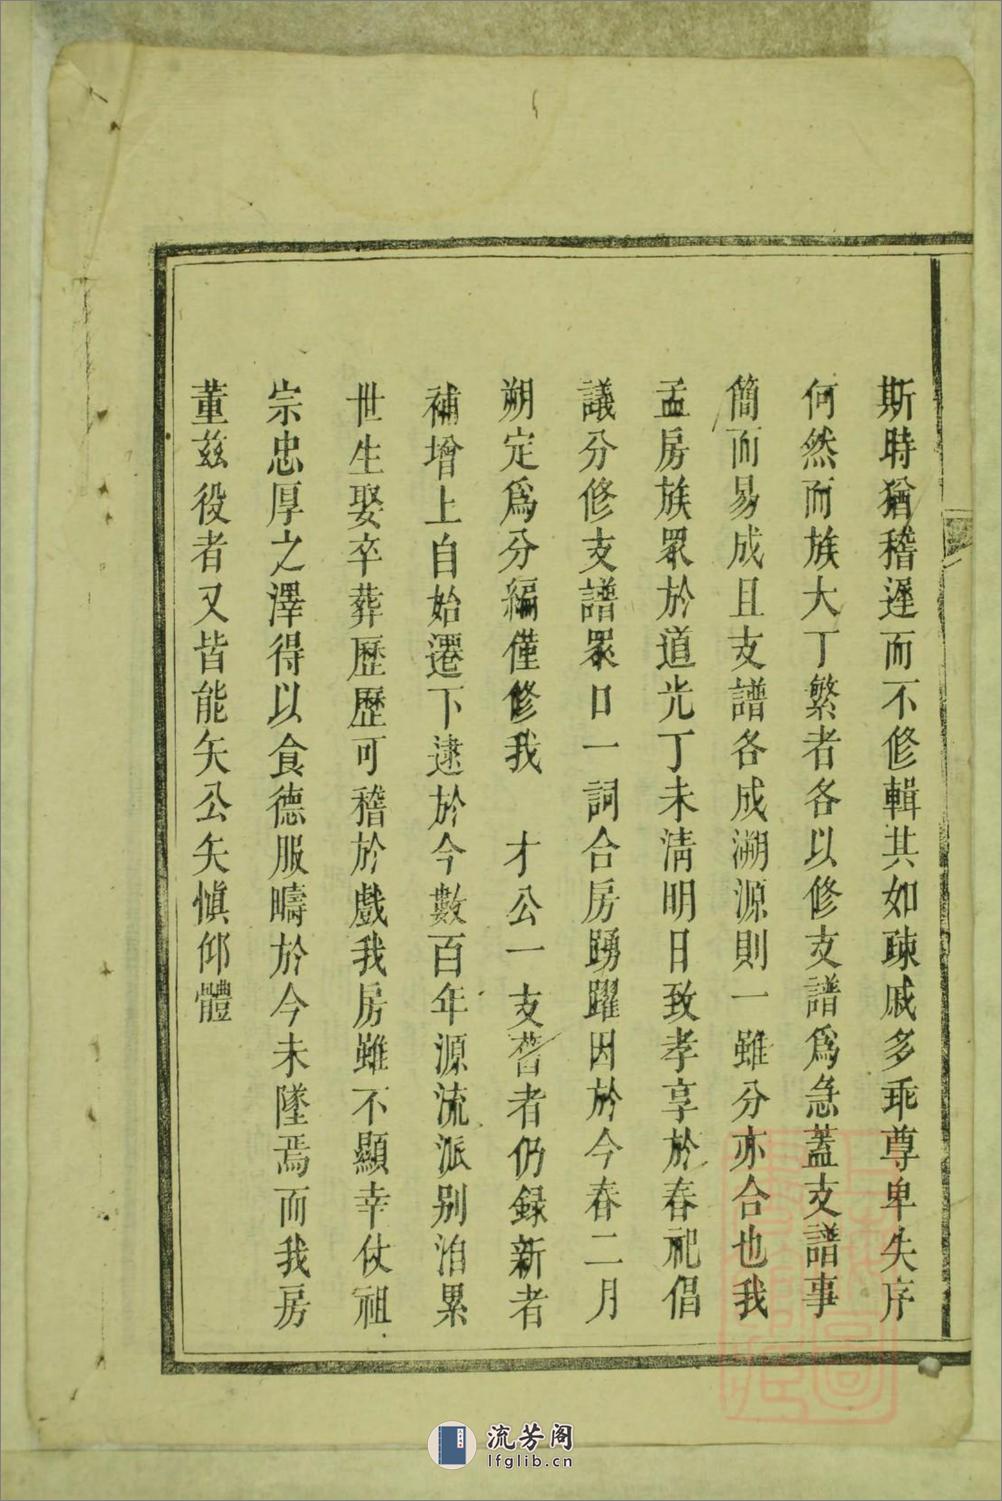 斯時猶稽遲而不修輯其如疎戚多乖尊卑失序
何然而族大丁繁者各以修支譜爲急蓋支譜事
簡而易成且支譜各成溯源則一雖分亦合也我
孟房族眾於道光丁未清明日致孝享於春祀倡
議分修支譜眾口一詞合房踴躍因於今春二月
朔定爲分編僅修我 才公一支舊者仍録新者
補增上自始遷下逮於今數百年源流派别洎累
世生娶卒葬歷歷可稽於戲我房雖不顯幸仗祖
宗忠厚之澤得以食德服疇於今未墜焉而我房
董兹役者又皆能矢公矢愼仰體
流芳阁
lfglib.cn